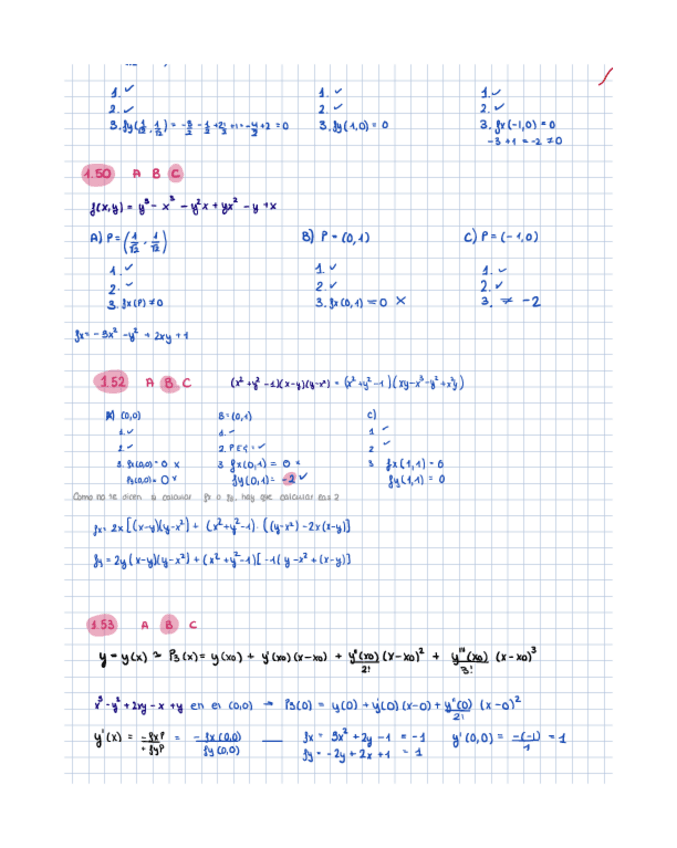 1. ✓ 1. ✓ 1. ✓
2. ✓ 2. ✓ 2. ✓
3. fy(1/√2, 1/√2) = 3. fy(1,0) = 0 3. fx(-1,0) = 0
-3 +1 = -2 ≠0
1.50 A B C
f(x,y) = y³ - x³ - y²x + yx² - y + x
A) P = (1/√2, 1/√2) B) P = (0,1) C) P = (-1,0)
1. ✓ 1. ✓ 1. ✓
2. ✓ 2 ✓ 2. ✓
3. fx(P) ≠ 0 3. fx(0,1) = 0 × 3. ≠ -2
fx = -3x² - y² + 2xy + 1
1.52 A B C (x² + y² - 1)(x-y)(y-x²) = (x² + y² - 1)(xy - x³ - y² + x²y)
A) (0,0) B = (0,1) C)
1. ✓ 1. ✓ 1 ✓
2. ✓ 2. P ES = ✓ 2 ✓
3. fx(0,0) = 0 × 3 fx(0,1) = 0 × 3 fx(1,1) = 0
fy(0,0) = 0 × fy(0,1) = -2 ✓ fy(1,1) = 0
Como no te dicen si calcular fx o fy, hay que calcular las 2
fx = 2x [(x-y)(y-x²) + (x²+y²-1) · ((y-x²) - 2x(x-y)]
fy = 2y (x-y)(y-x²) + (x² + y² - 1)[ -1( y - x² + (x-y)]
1.53 A B C
y = y(x) ≈ P3(x) = y(x0) + y'(x0)(x-x0) + y''(x0)/2! (x-x0)² + y'''(x0)/3! (x-x0)³
x³ - y² + 2xy - x + y en el (0,0) → P3(0) = y(0) + y'(0)(x-0) + y''(0)/2! (x-0)²
y'(x) = -fxP/+fyP = -fx(0,0)/fy(0,0) — fx = 3x² + 2y - 1 = -1 y'(0,0) = -(-1)/1 = 1
fy = -2y + 2x + 1 = 1